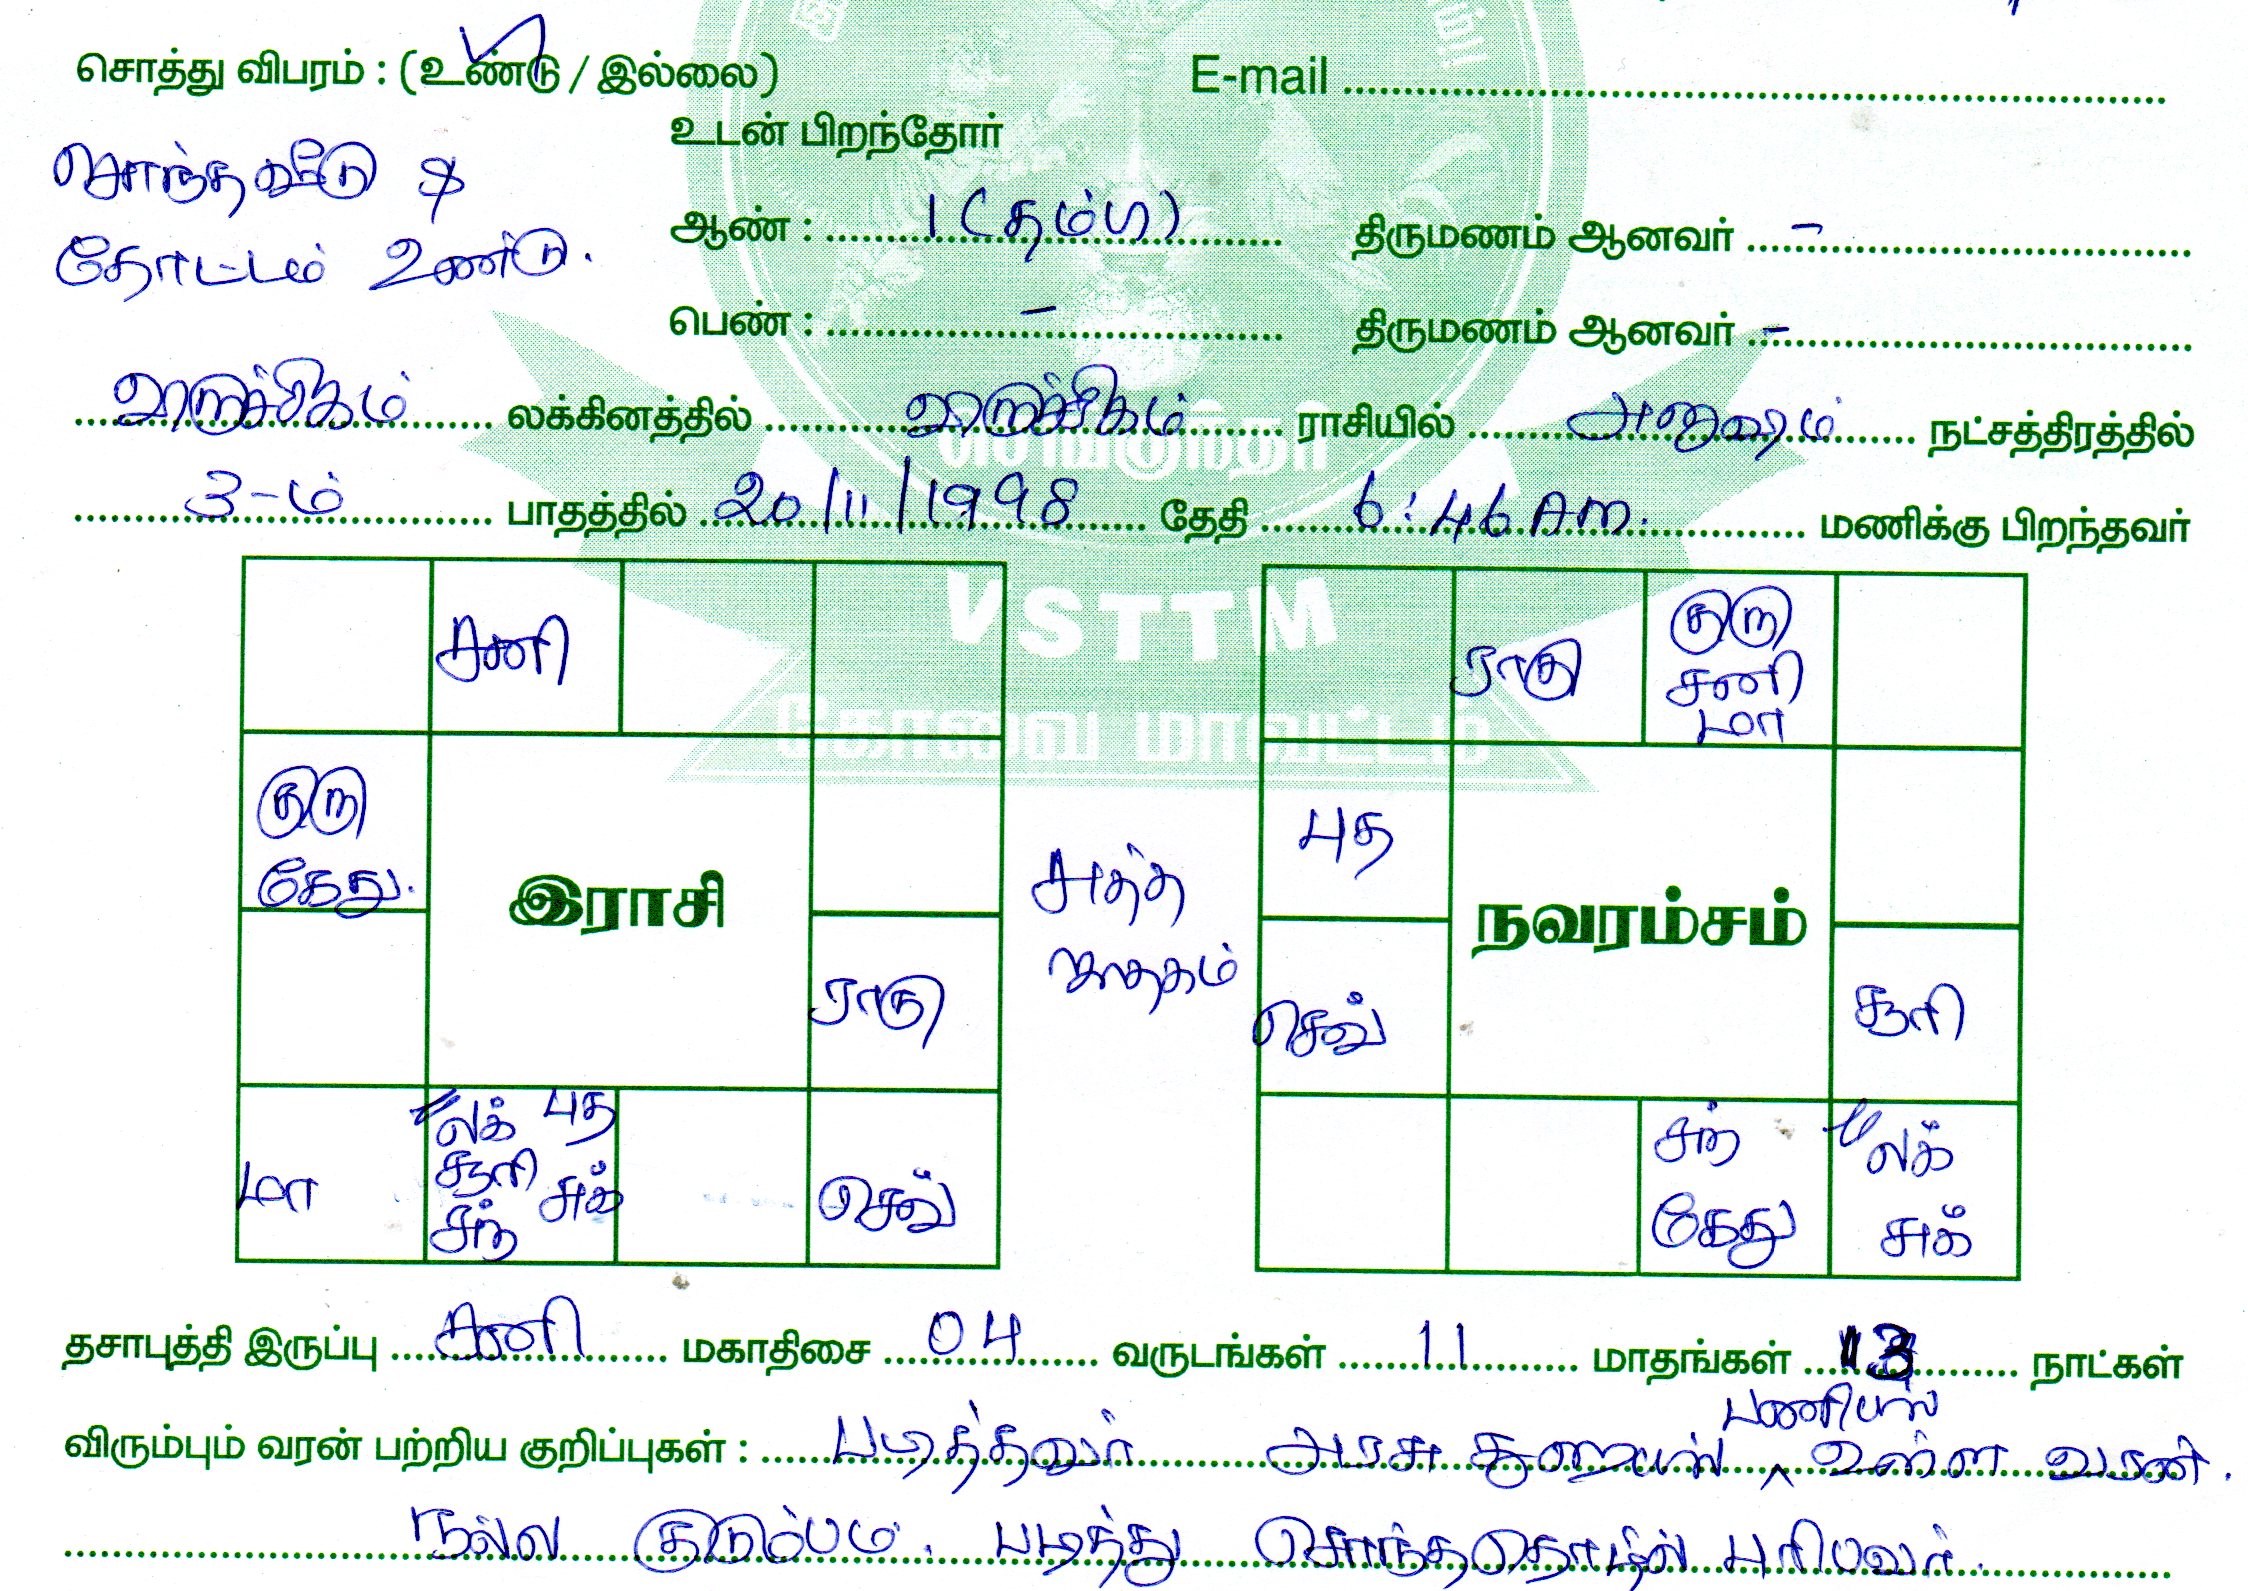 சொத்து விபரம் : (உண்டு / இல்லை) E-mail
உடன் பிறந்தோர்
சொந்த வீடு &
ஆண் : 1 (தம்பி) திருமணம் ஆனவர் -
தோட்டம் உண்டு.
பெண் : - திருமணம் ஆனவர் -
விருச்சிகம் லக்கினத்தில் விருச்சிகம் ராசியில் அனுஷம் நட்சத்திரத்தில்
செங்குந்தர்
3-ம் பாதத்தில் 20/11/1998 தேதி 6:46 Am. மணிக்கு பிறந்தவர்
VSTTM
கோவை மாவட்டம்
சனி
குரு
கேது.
இராசி
ராகு
மா
லக் புத
சூரி சுக்
சந்
செவ்
சுத்த
ஜாதகம்
ராகு
குரு
சனி
மா
புத
நவரம்சம்
செவ்
சூரி
சந்
கேது
லக்
சுக்
தசாபுத்தி இருப்பு சனி மகாதிசை 04 வருடங்கள் 11 மாதங்கள் 13 நாட்கள்
விரும்பும் வரன் பற்றிய குறிப்புகள் : படித்தவர் அரசு துறையில் பணியில் உள்ள வரன்.
நல்ல குடும்பம். படித்து சொந்த தொழில் புரிபவர்.